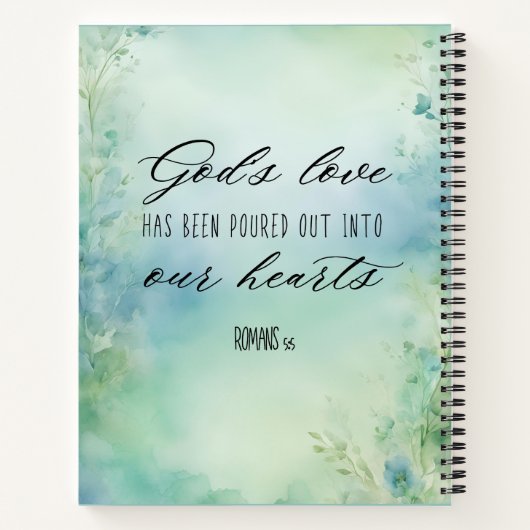 God's love
HAS BEEN POURED OUT INTO
our hearts
ROMANS 5:5